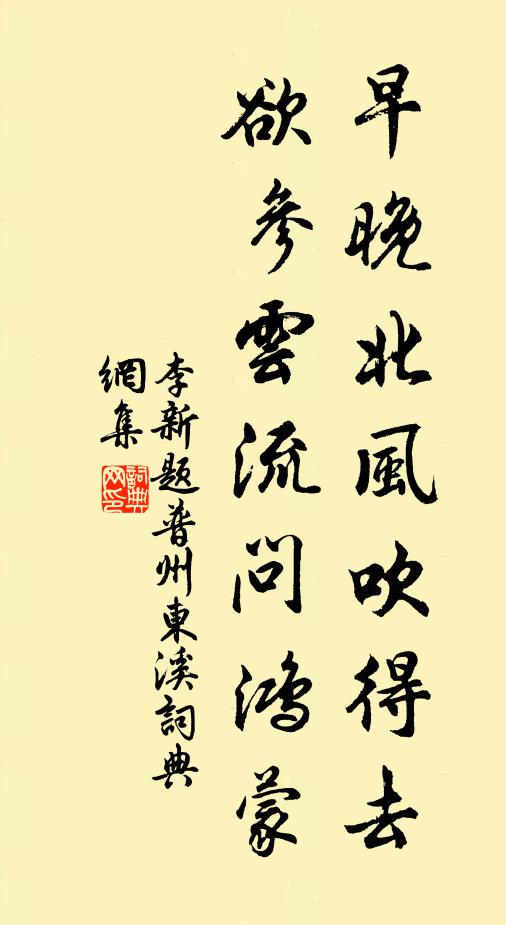 早晚北風吹得去
欲參雲流問鴻蒙
李新題普州東溪詞典
網集
詞典網印